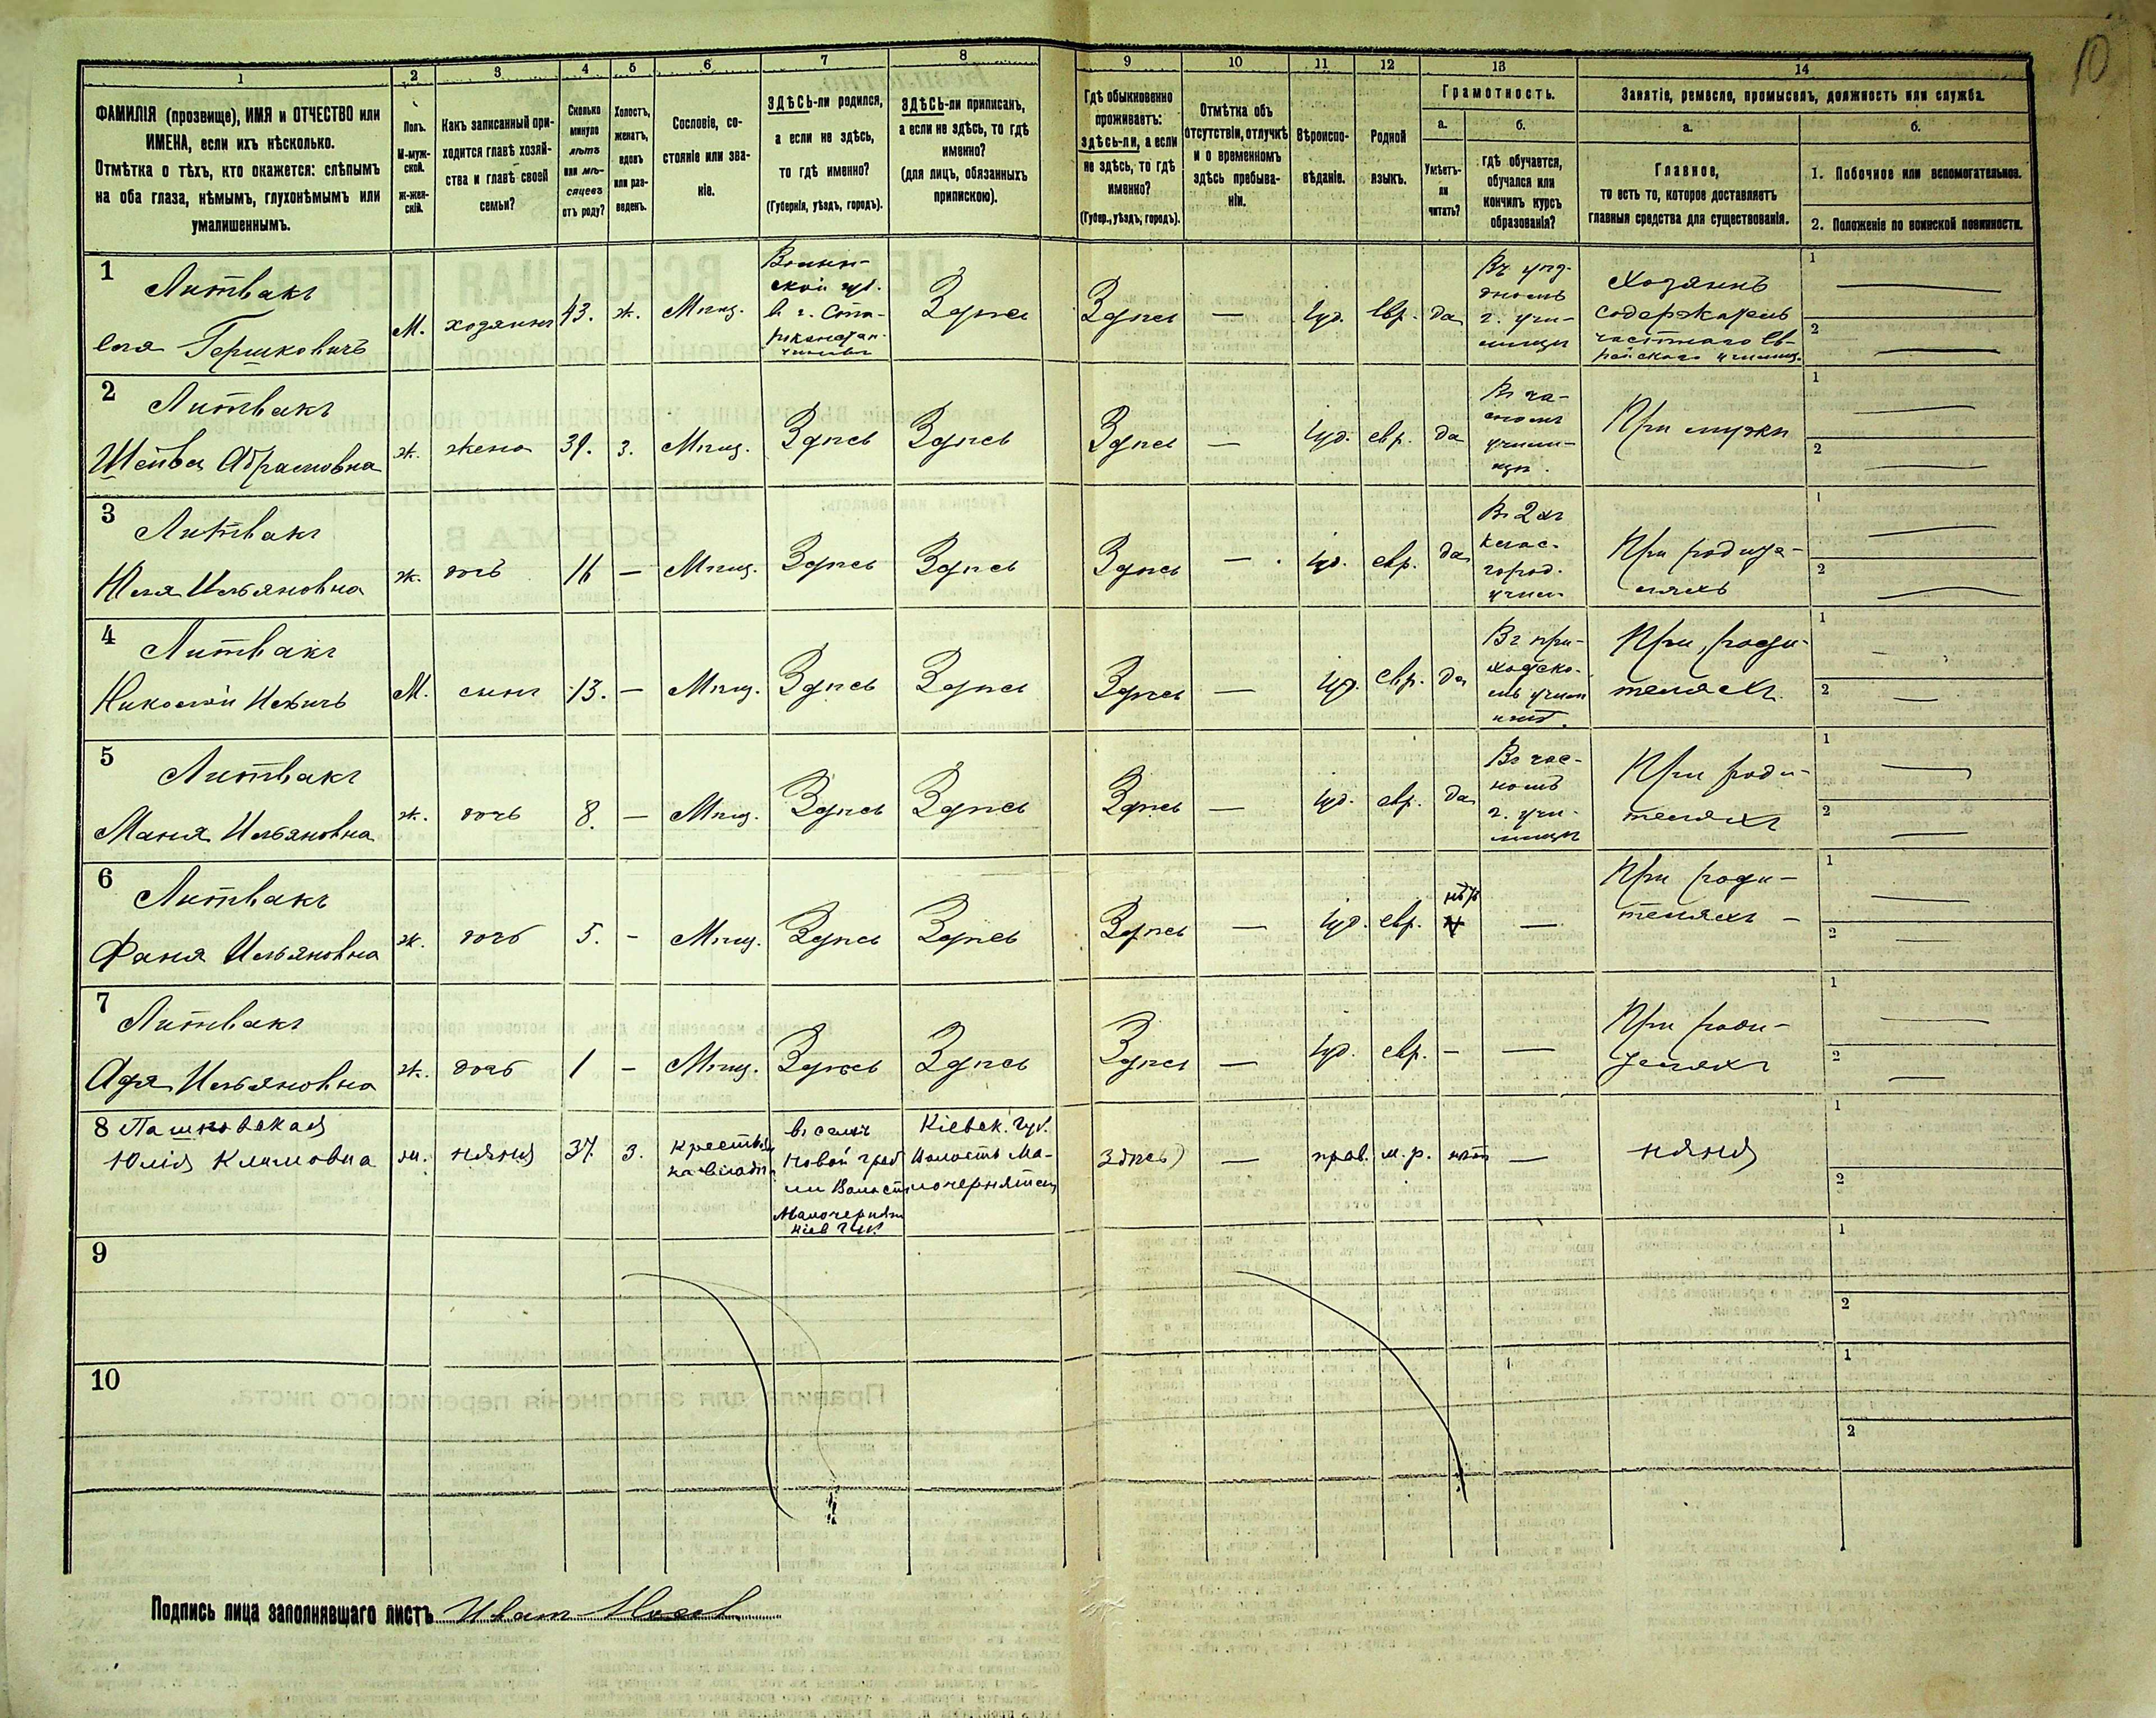 10
1
2
3
4
5
6
7
8
9
10
11
12
13
14
ФАМИЛІЯ (прозвище), ИМЯ и ОТЧЕСТВО или
ИМЕНА, если ихъ нѣсколько.
Отмѣтка о тѣхъ, кто окажется: слѣпымъ
на оба глаза, нѣмымъ, глухонѣмымъ или
умалишеннымъ.
Полъ.
М-муж-
ской.
Ж-жен-
скій.
Какъ записанный при-
ходится главѣ хозяй-
ства и главѣ своей
семьи?
Сколько
минуло
лѣтъ
или мѣ-
сяцевъ
отъ роду?
Холостъ,
женатъ,
вдовъ
или раз-
веденъ.
Сословіе, со-
стояніе или зва-
ніе.
ЗДѢСЬ-ли родился,
а если не здѣсь,
то гдѣ именно?
(Губернія, уѣздъ, городъ).
ЗДѢСЬ-ли приписанъ,
а если не здѣсь, то гдѣ
именно?
(для лицъ, обязанныхъ
припискою).
Гдѣ обыкновенно
проживаетъ:
здѣсь-ли, а если
не здѣсь, то гдѣ
именно?
(Губер., уѣздъ, городъ).
Отмѣтка объ
отсутствіи, отлучкѣ
и о временномъ
здѣсь пребыва-
ніи.
Вѣроиспо-
вѣданіе.
Родной
языкъ.
Грамотность.
а.
Умѣетъ-
ли
читать?
б.
гдѣ обучается,
обучался или
кончилъ курсъ
образованія?
Занятіе, ремесло, промыселъ, должность или служба.
а.
Главное,
то есть то, которое доставляетъ
главныя средства для существованія.
б.
1. Побочное или вспомогательное.
2. Положеніе по воинской повинности.
1
Литвакъ
Гершковичъ
М. хозяинъ 43. ж. Мѣщ.
Здѣсь Здѣсь — Іуд. Евр. да
Хозяинъ
содержатель
частнаго ев-
рейскаго училищ.
1
2
2
Литвакъ
Шейва Абрамовна ж. жена 39. з. Мѣщ. Здѣсь Здѣсь Здѣсь — Іуд. евр. да
При мужѣ
1
2
3
Литвакъ
Ильяновна ж. дочь 16 — Мѣщ. Здѣсь Здѣсь Здѣсь — Іуд. евр. да
Въ 2 хъ
клас.
город.
учил.
При родите-
ляхъ
1
2
4
Литвакъ
Николай Ильичъ М. сынъ 13. — Мѣщ. Здѣсь Здѣсь Здѣсь — Іуд. евр. да
Въ при-
ходско-
При роди-
теляхъ.
1
2
5
Литвакъ
Маня Ильяновна ж. дочь 8. — Мѣщ. Здѣсь Здѣсь Здѣсь — Іуд. евр. да
Въ час-
номъ
г. учи-
лищѣ
При роди-
теляхъ
1
2
6
Литвакъ
Фаня Ильяновна ж. дочь 5. — Мѣщ. Здѣсь Здѣсь Здѣсь — Іуд. евр. нѣтъ —
При роди-
теляхъ —
1
2
7
Литвакъ
Адя Ильяновна ж. дочь 1 — Мѣщ. Здѣсь Здѣсь Здѣсь — Іуд. евр. — —
При роди-
теляхъ
1
2
8 Пашковская
Юлія Климовна
няня 37. з.
въ селѣ
Кіевск. Губ.
Волость Ма-
Кіев Губ.
здѣсь — прав. м. р. нѣтъ — няня
1
2
9
1
2
10
1
2
Подпись лица заполнявшаго листъ